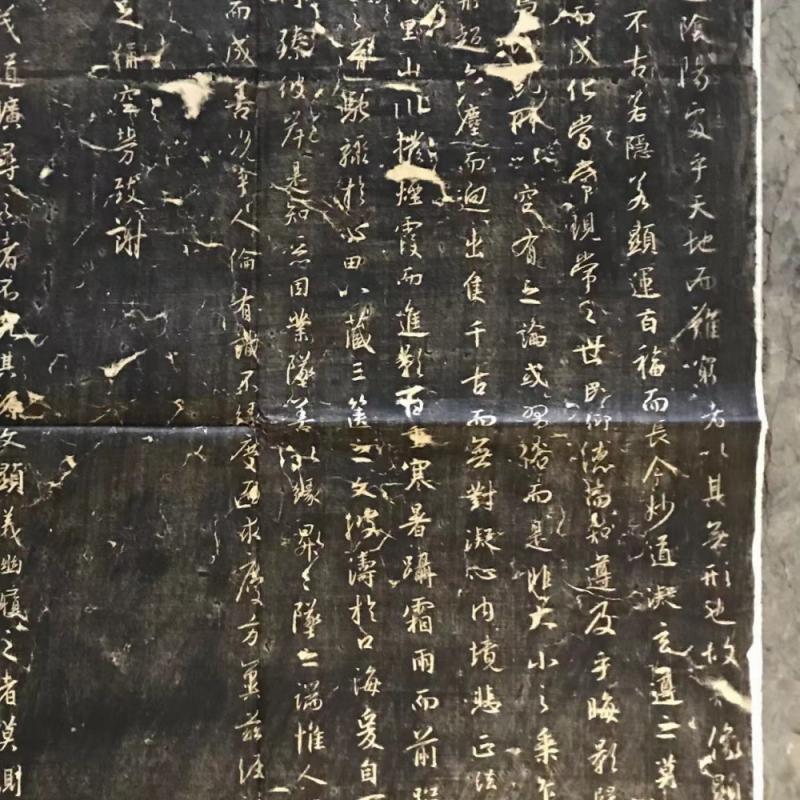 陰陽處乎天地而難窮者以其無形也故 像顯
不古若隱若顯運百福而長今妙道凝玄遵之莫
而成化當常現常之世民仰德而知遵及乎晦影歸
糾所以空有之論或習俗而是非大小之乘乍
超六塵而迥出隻千古而無對凝心內境悲正法
里山川撥煙霞而進影百重寒暑躡霜雨而前蹤
馳驟於心田八藏三篋之文波濤於口海爰自
臻彼岸是知惡因業墜善以緣昇昇墜之端惟人
而成善況乎人倫有識不緣慶而求慶方冀茲經
足稱空勞致謝
茂道曠尋之者不究其源文顯義幽履之者莫測